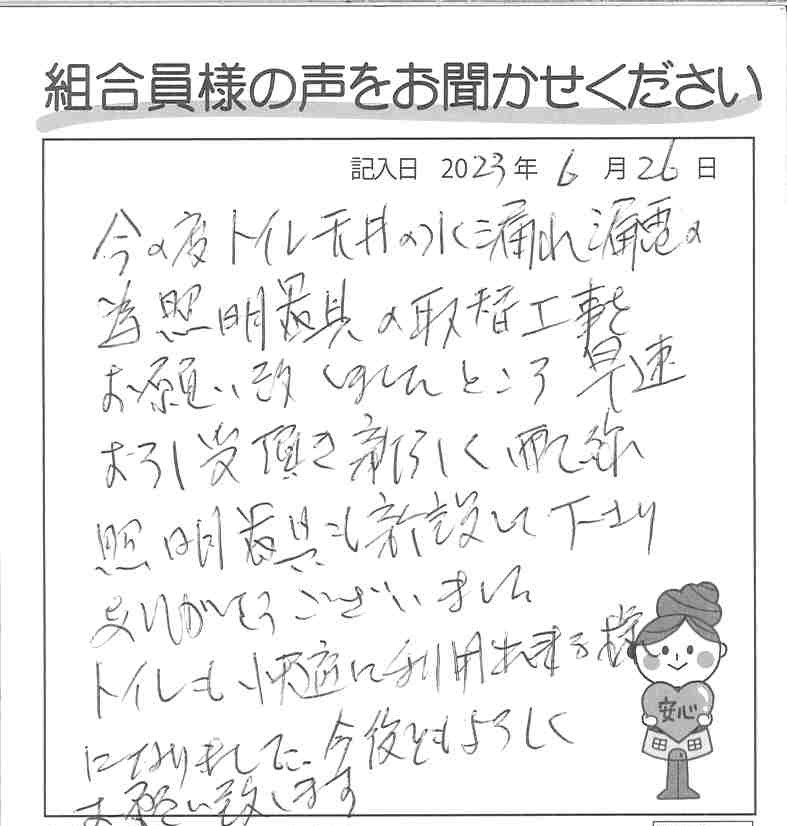 組合員様の声をお聞かせください
記入日 2023年 6月26日
今の度トイレ天井の水漏れ漏電の
為照明器具の取替工事を
お願い致しましたところ早速
お引受頂き新らしく配線
照明器具も新設して下さり
ありがとうございました
トイレも快適に利用出来る様
になりました、今後ともよろしく
お願い致します
安心